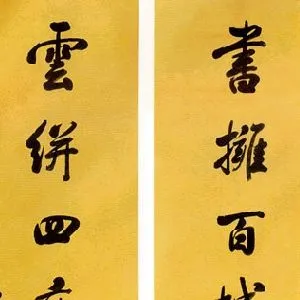 書擁百
雲絣四